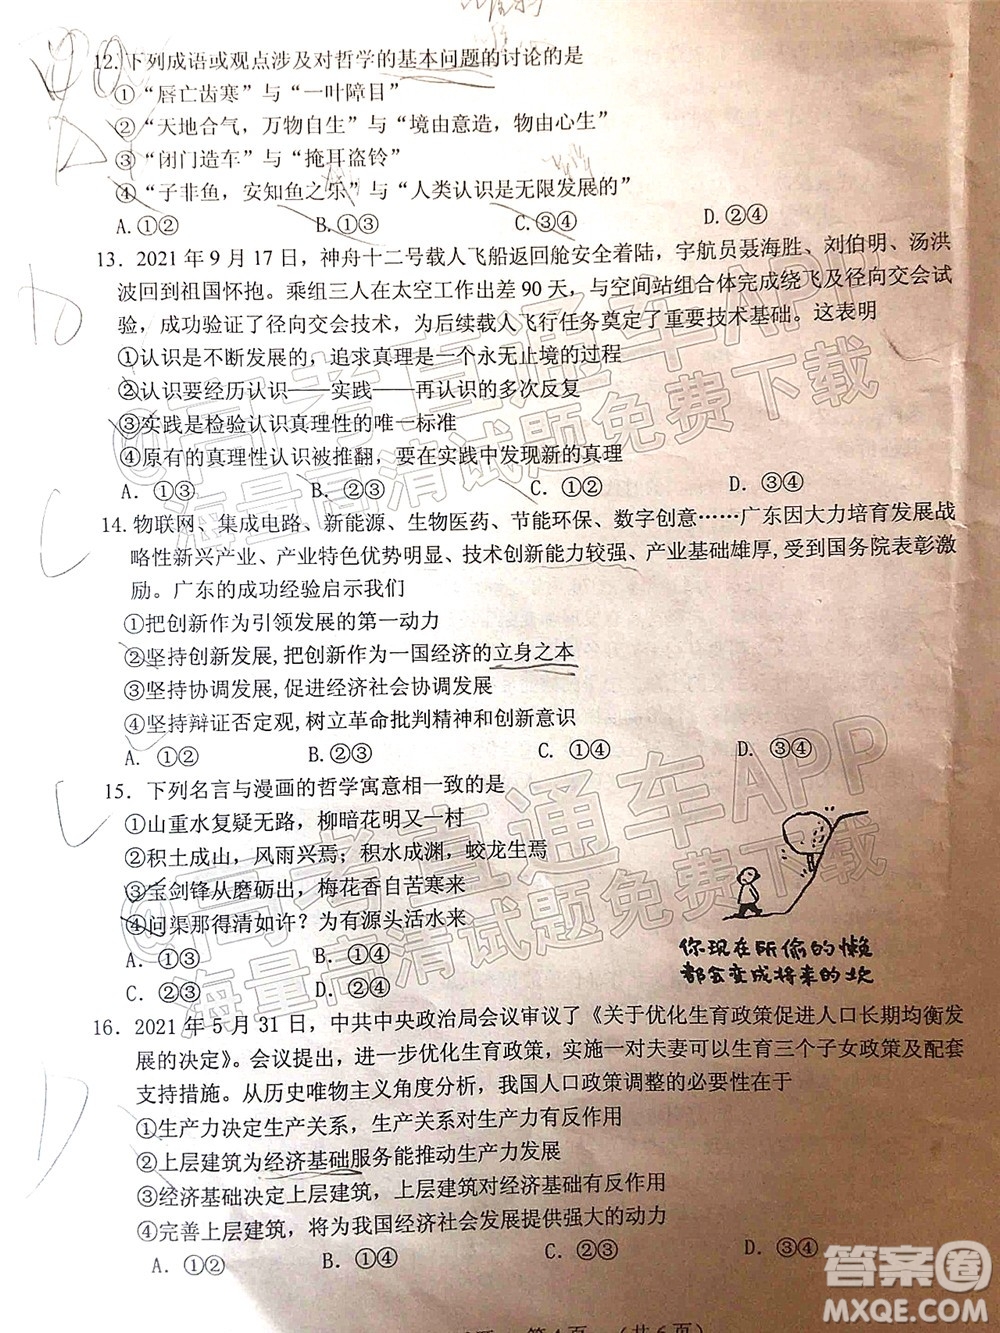 12. 下列成语或观点涉及对哲学的基本问题的讨论的是
①“唇亡齿寒”与“一叶障目”
②“天地合气，万物自生”与“境由意造，物由心生”
③“闭门造车”与“掩耳盗铃”
④“子非鱼，安知鱼之乐”与“人类认识是无限发展的”
A.①② B.①③ C.③④ D.②④
13．2021 年 9 月 17 日，神舟十二号载人飞船返回舱安全着陆，宇航员聂海胜、刘伯明、汤洪
波回到祖国怀抱。乘组三人在太空工作出差 90 天，与空间站组合体完成绕飞及径向交会试
验，成功验证了径向交会技术，为后续载人飞行任务奠定了重要技术基础。这表明
①认识是不断发展的，追求真理是一个永无止境的过程
②认识要经历认识——实践——再认识的多次反复
③实践是检验认识真理性的唯一标准
④原有的真理性认识被推翻，要在实践中发现新的真理
A．①③ B．②③ C．①② D．③④
14．物联网、集成电路、新能源、生物医药、节能环保、数字创意……广东因大力培育发展战
略性新兴产业、产业特色优势明显、技术创新能力较强、产业基础雄厚,受到国务院表彰激
励。广东的成功经验启示我们
①把创新作为引领发展的第一动力
②坚持创新发展,把创新作为一国经济的立身之本
③坚持协调发展,促进经济社会协调发展
④坚持辩证否定观,树立革命批判精神和创新意识
A．①② B．②③ C．①④ D．③④
15．下列名言与漫画的哲学寓意相一致的是
①山重水复疑无路，柳暗花明又一村
②积土成山，风雨兴焉；积水成渊，蛟龙生焉
③宝剑锋从磨砺出，梅花香自苦寒来
④问渠那得清如许？为有源头活水来
A．①③ B．①④
C．②③ D．②④
你现在所偷的懒
都会变成将来的坎
16．2021 年 5 月 31 日，中共中央政治局会议审议了《关于优化生育政策促进人口长期均衡发
展的决定》。会议提出，进一步优化生育政策，实施一对夫妻可以生育三个子女政策及配套
支持措施。从历史唯物主义角度分析，我国人口政策调整的必要性在于
①生产力决定生产关系，生产关系对生产力有反作用
②上层建筑为经济基础服务能推动生产力发展
③经济基础决定上层建筑，上层建筑对经济基础有反作用
④完善上层建筑，将为我国经济社会发展提供强大的动力
A．①② B．①④ C．②③ D．③④
第4页 （共6页）
@高考直通车APP
海量高清试题免费下载
@高考直通车APP
海量高清试题免费下载
答案圈
MXQE.COM